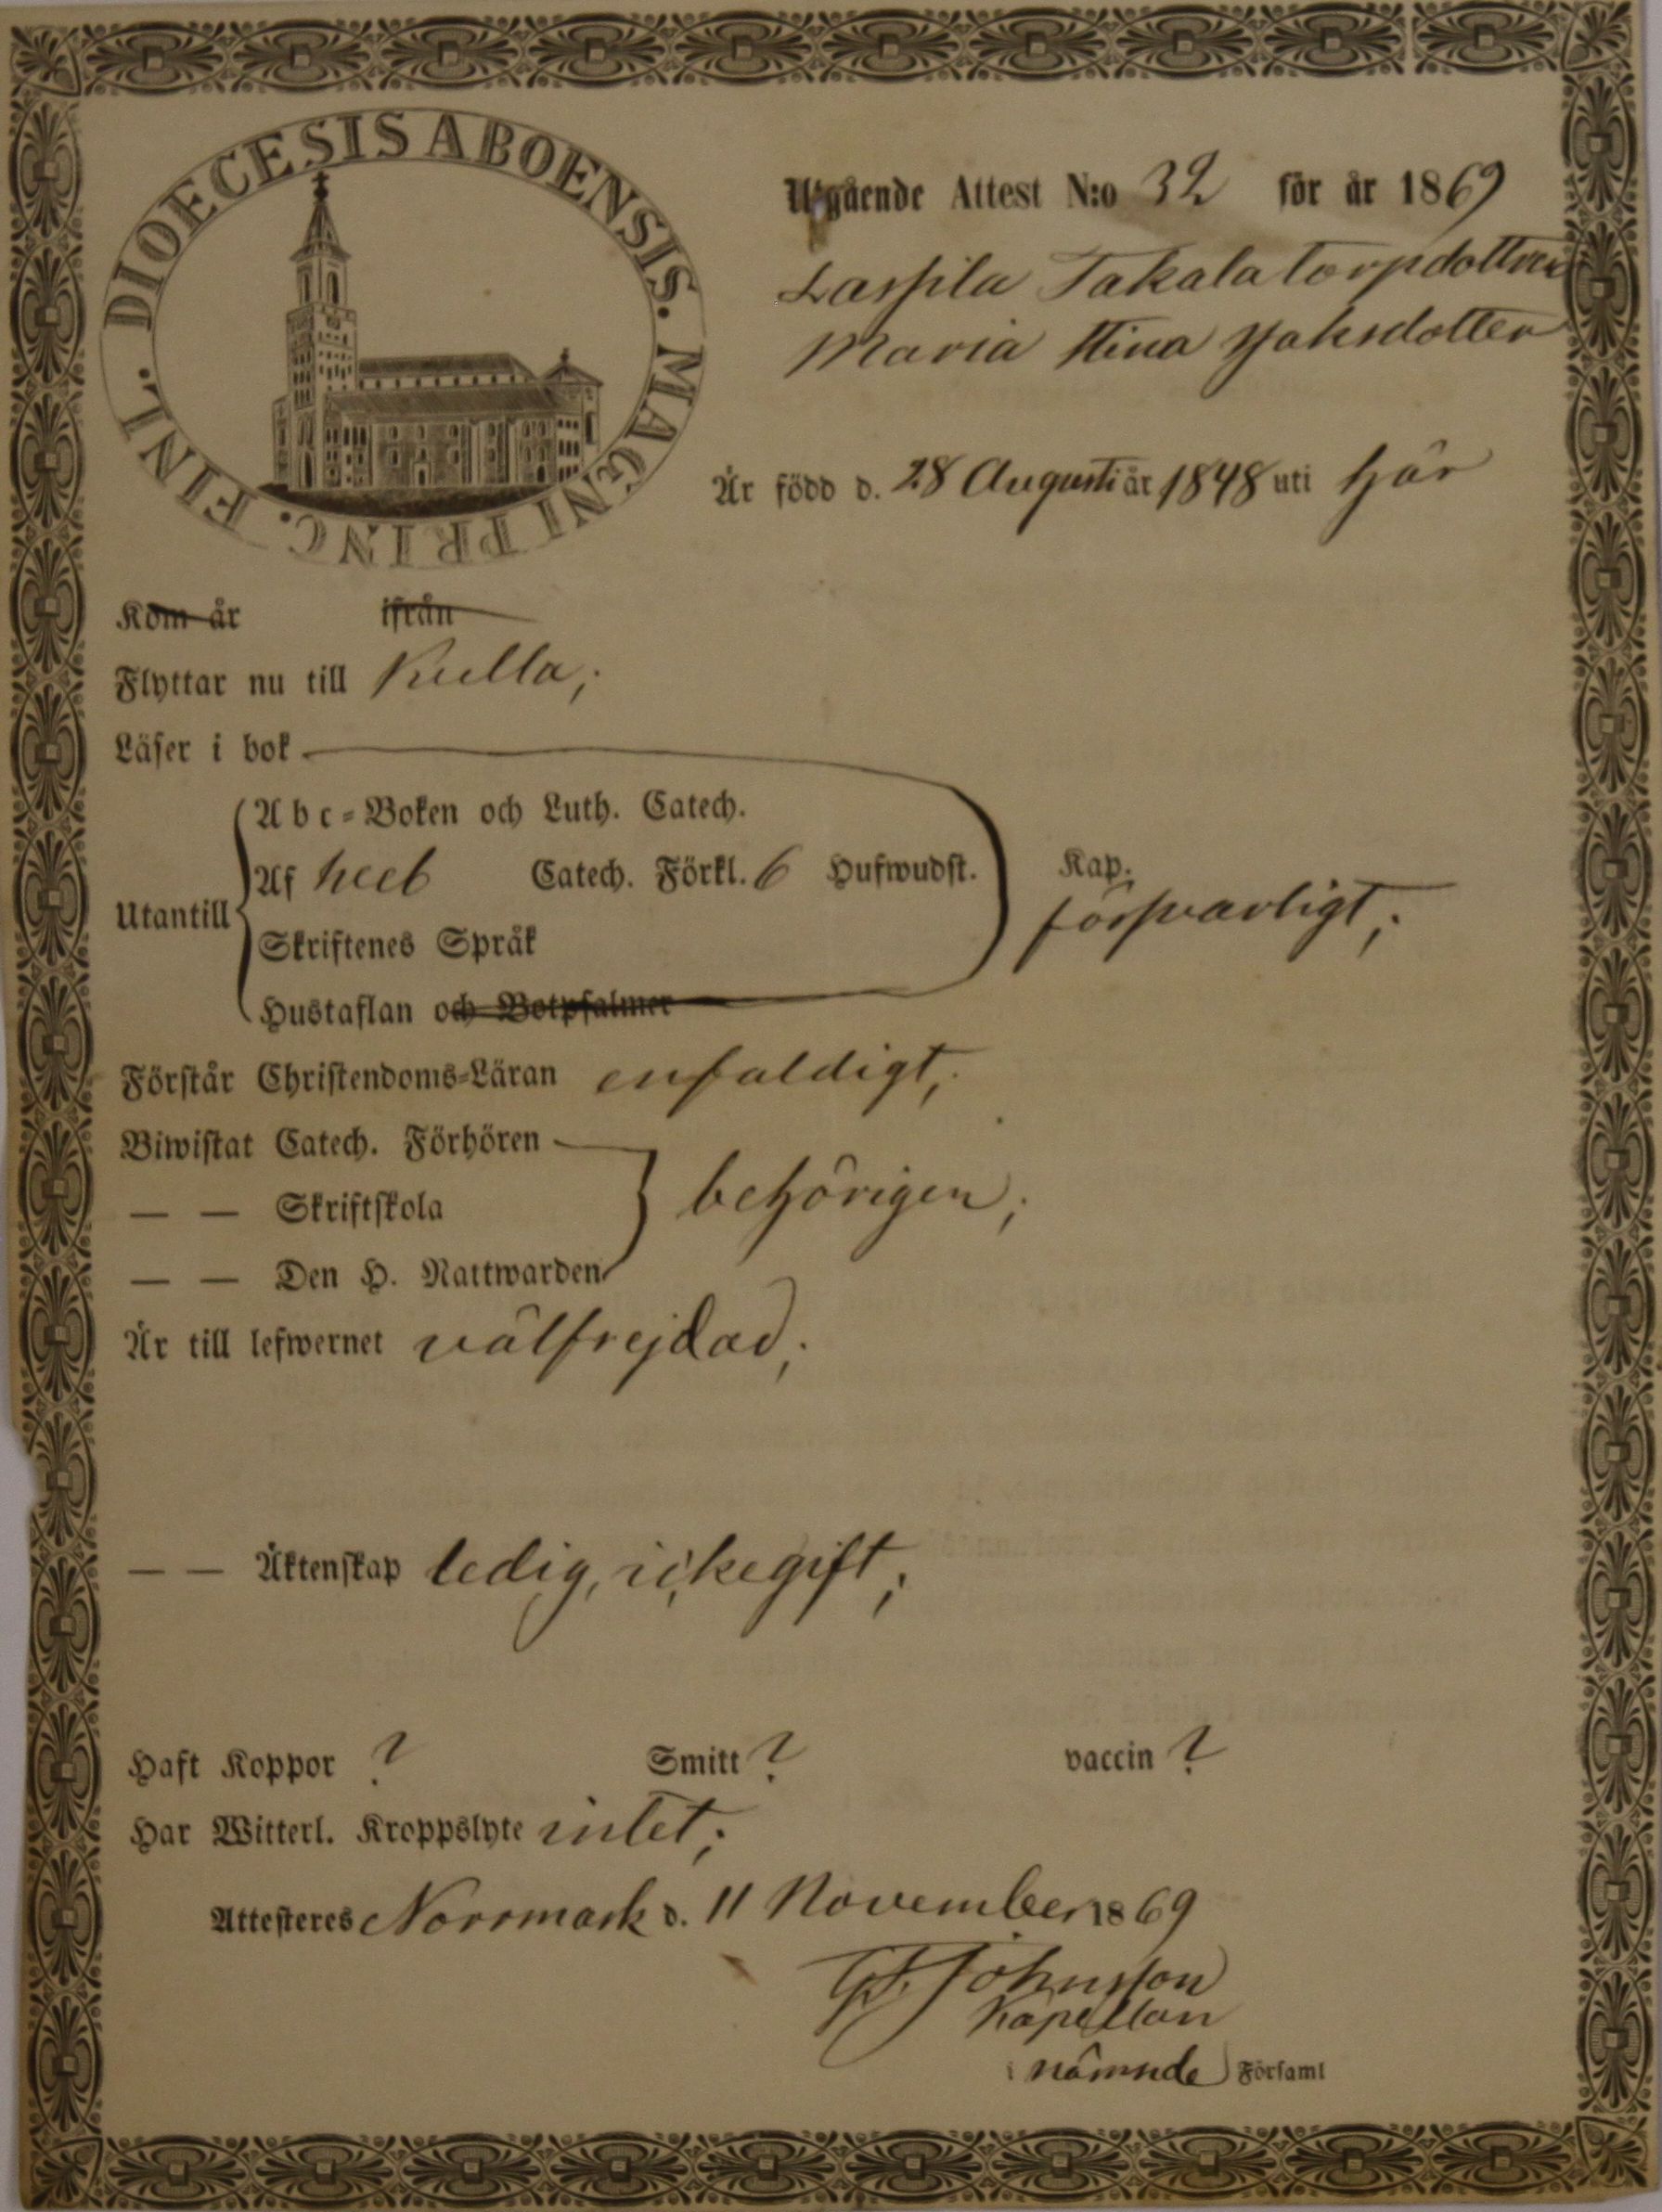 DIOECESIS ABOENSIS. MAGNI PRINC. FINL.
Utgående Attest N:o 32 för år 1869
Lassila Takala torpdottren
Maria Stina Jaksdotter
Är född d. 28 Augusti år 1848 uti här
Kom år ifrån
Flyttar nu till Kulla;
Läser i bok
Abc-Boken och Luth. Catech.
Af heel Catech. Förkl. 6 Hufwudst. Kap.
Utantill försvarligt;
Skriftenes Språk
Hustaflan och Botpsalmer
Förstår Christendoms-Läran enfaldigt;
Biwistat Catech. Förhören
— — Skriftskola behörigen;
— — Den H. Nattwarden
Är till lefwernet välfrejdad;
— — Äktenskap ledig, icke gift;
Haft Koppor ? Smitt ? vaccin ?
Har Witterl. Kroppslyte intet;
Attesteres Norrmark d. 11 November 1869
Johnsson
Kapellan
i nämnde Församl